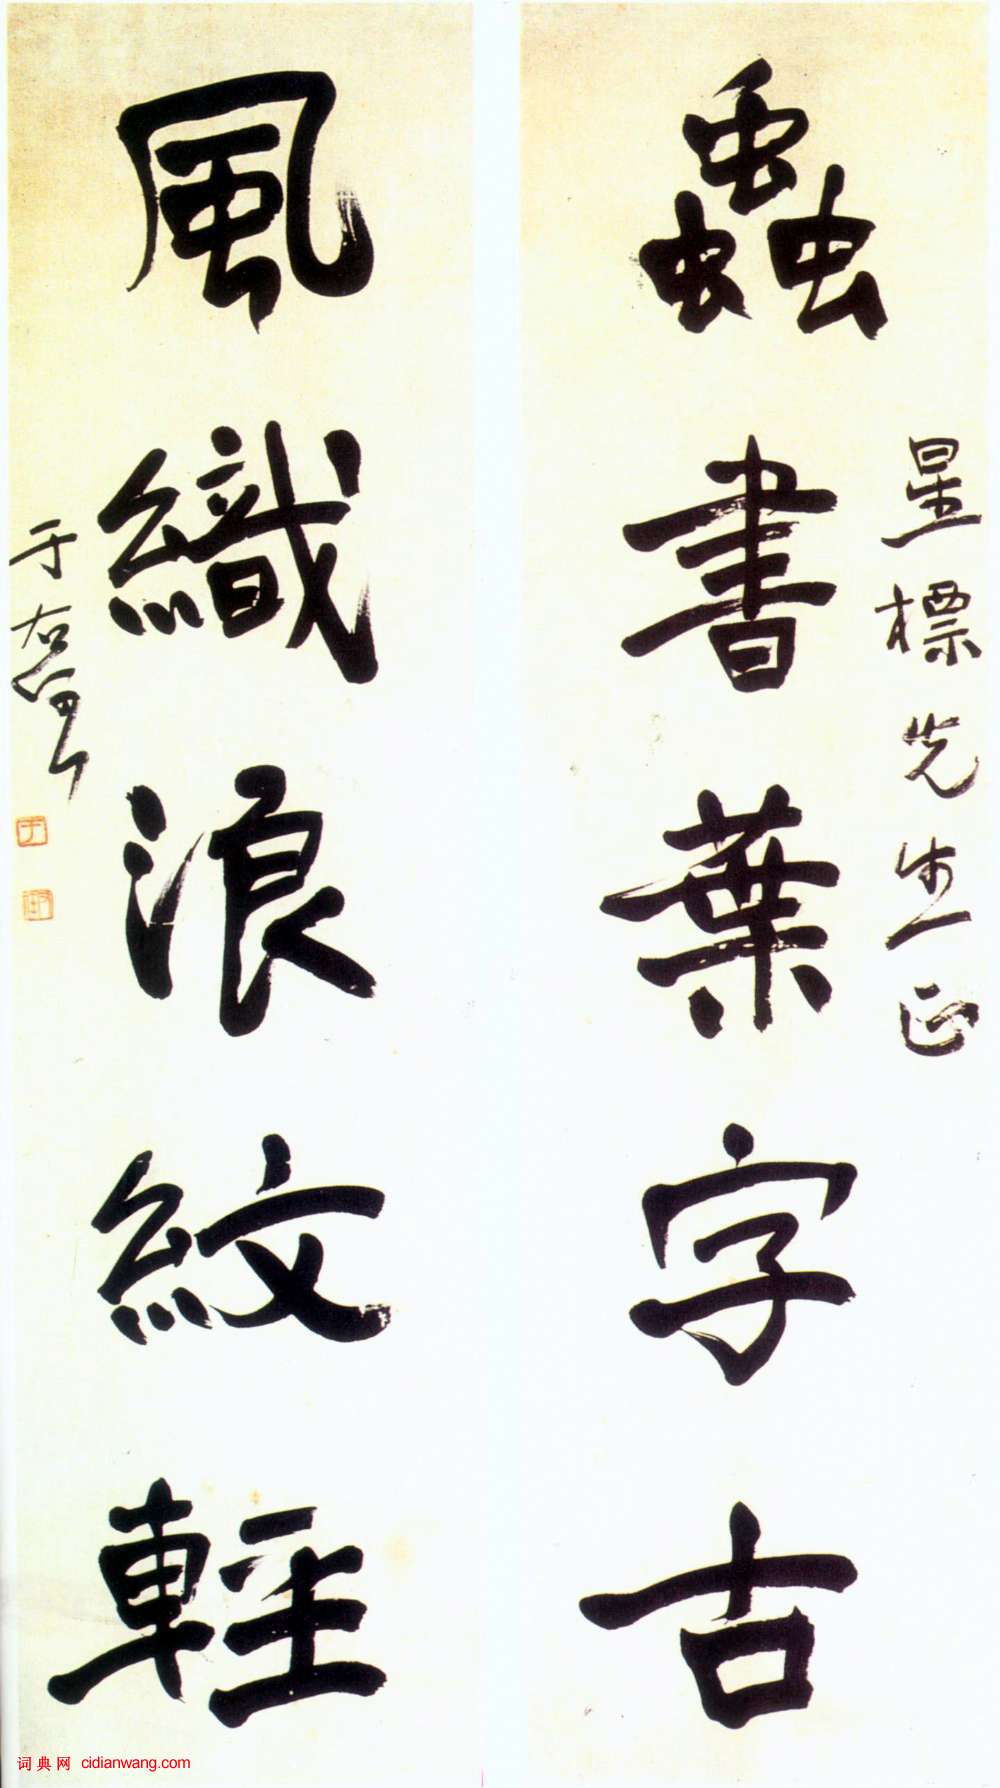 星標先生正
蟲書葉字古
風織浪紋輕
于右任
词典网 cidianwang.com